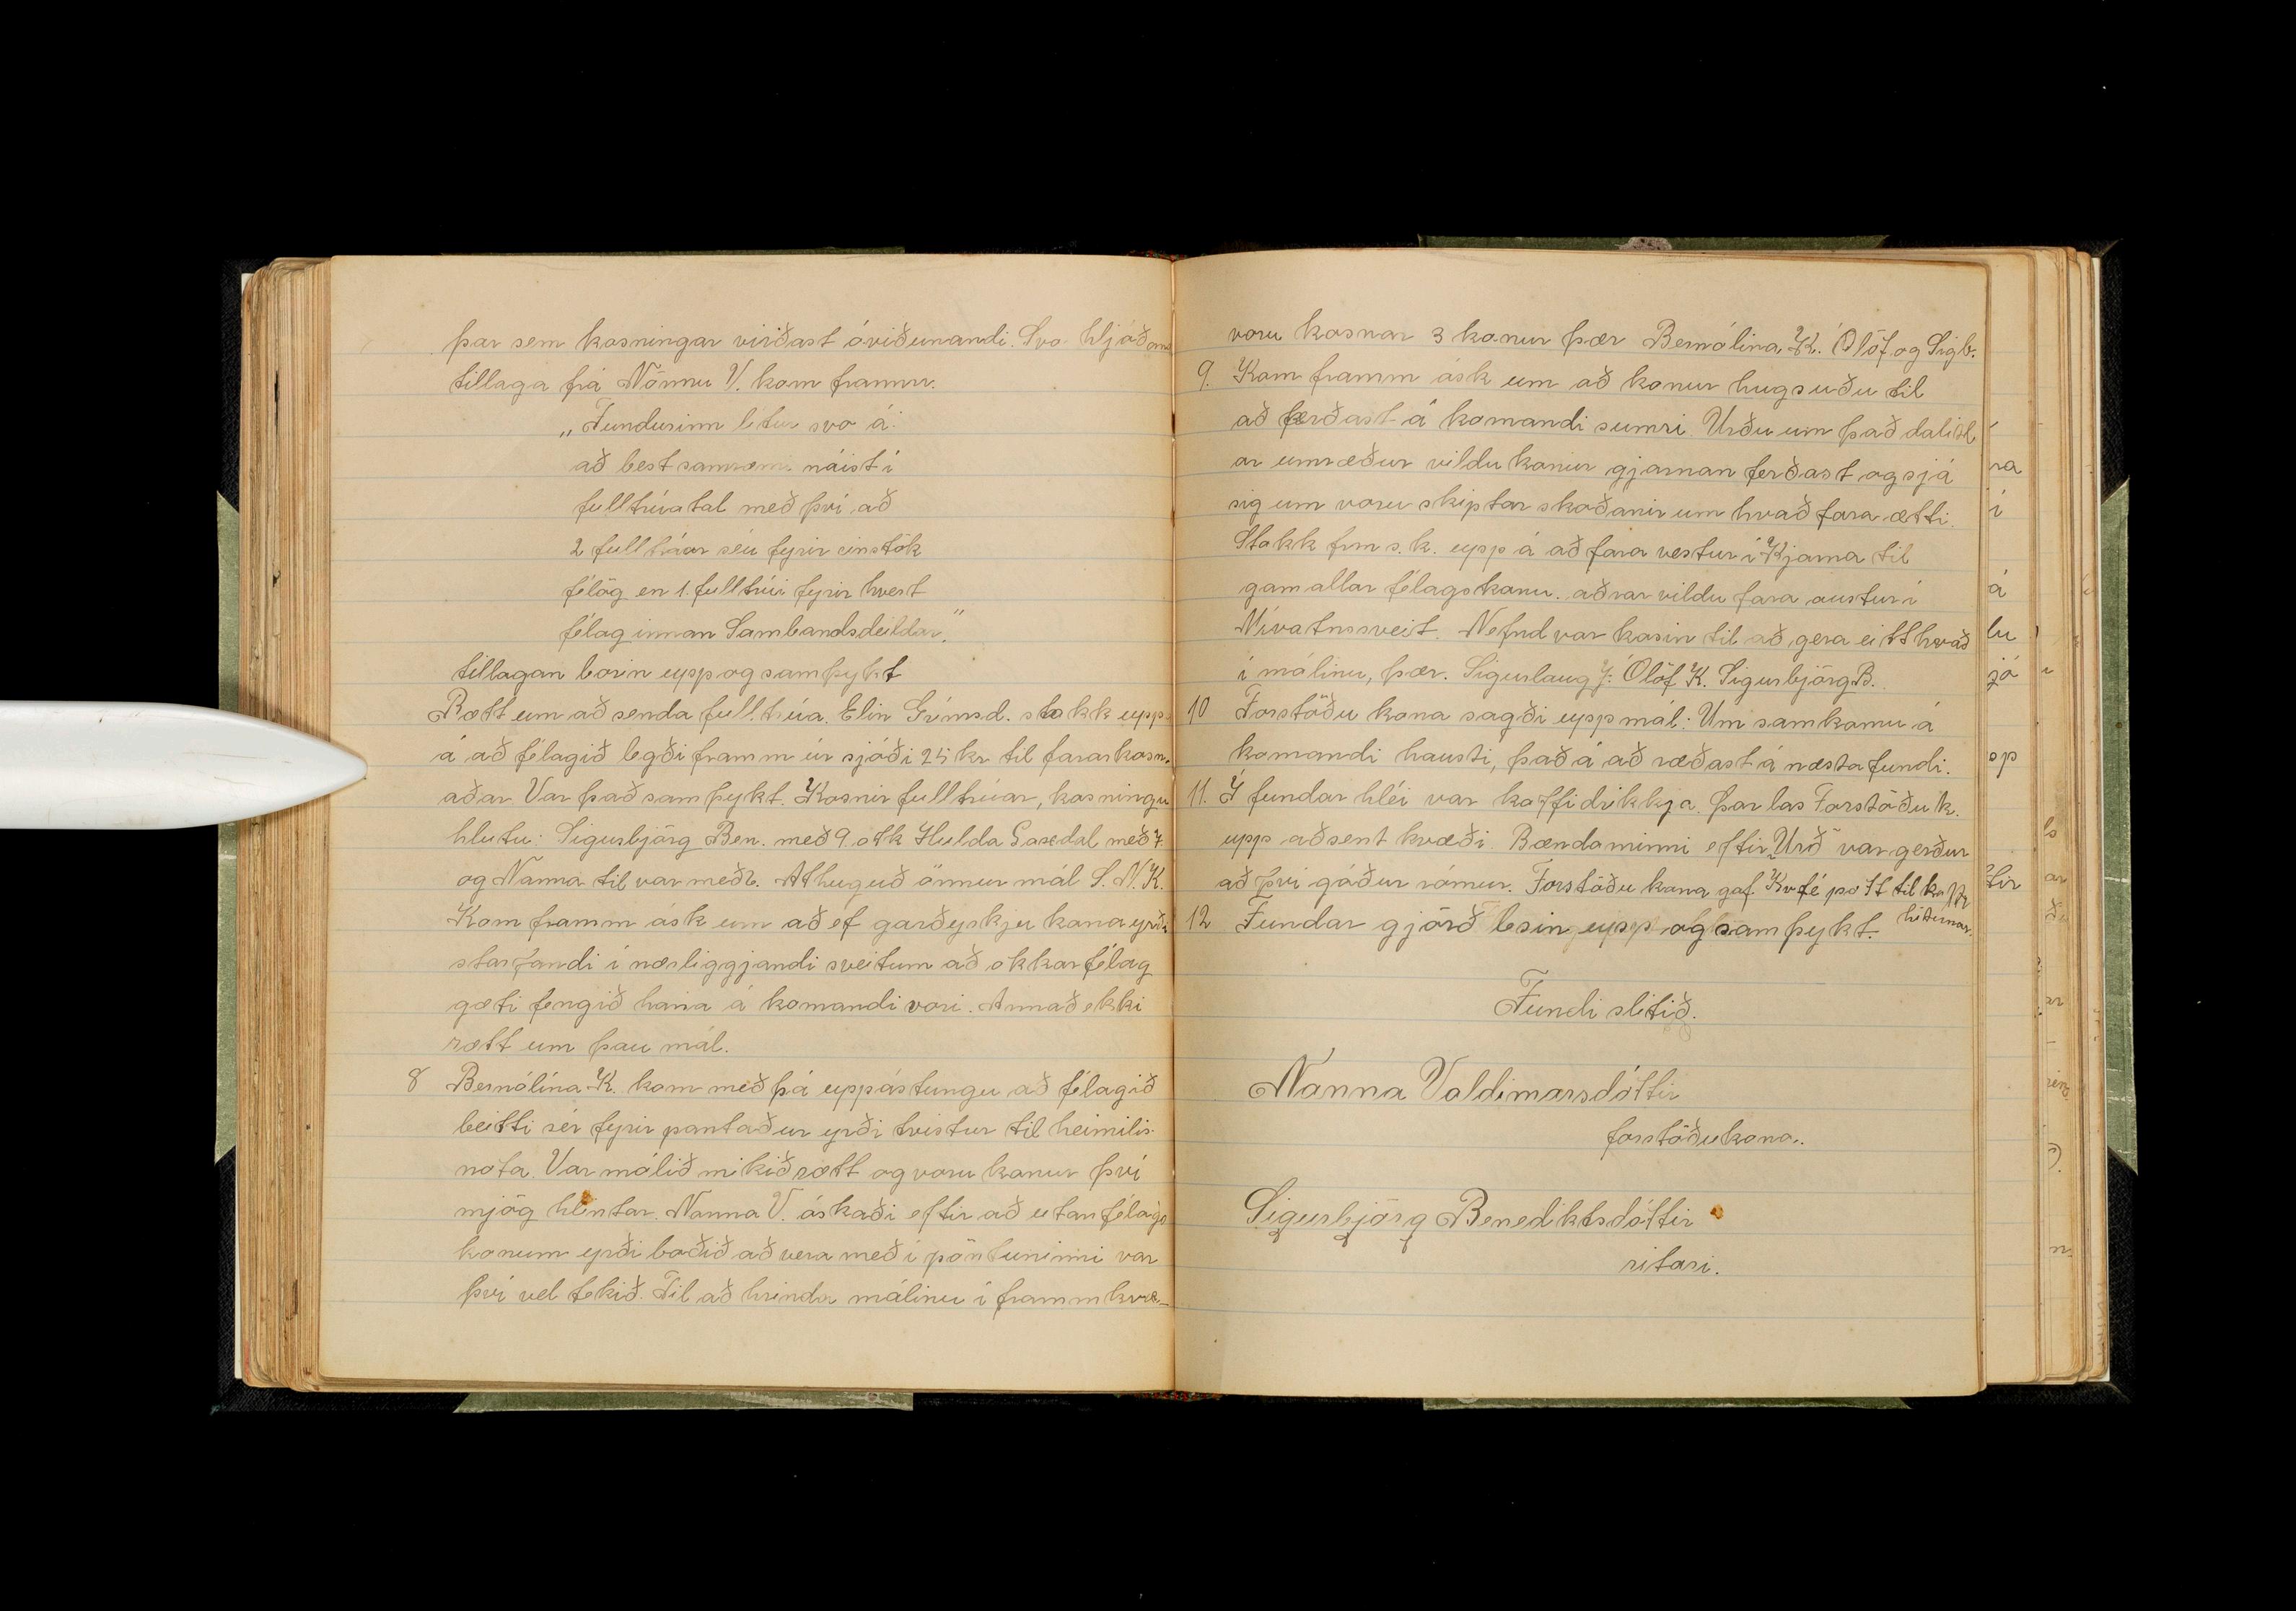 þar sem kosningar virðast óviðunandi. Svo hljóðandi
tillaga frá Nönnu V. kom framm.
„Fundurinn lítur svo á:
að best samræmi náist í
fulltrúatal með því að
2 fulltrúar séu fyrir einstök
félög en 1. fulltrúi fyrir hvert
félag innan Sambandsdeildar."
tillagan borin upp og samþykt
Rætt um að senda fulltrúa. Elin Grímsd. stakk upp
á að félagið legði framm úr sjóði 25 kr til fararkosn.
aðar. Var það samþykt. Kosnir fulltrúar, kosningu
hlutu: Sigurbjörg Ben. með 9. atk Hulda Garðdal með 7.
og Nanna til var með 6. Athuguð önnur mál S.N.K.
Kom framm ósk um að ef garðyrkju kona yrði
starfandi í nærliggjandi sveitum að okkar félag
gæti fengið hana á komandi vori. Annað ekki
rætt um þau mál.
8 Bernólína K. kom með þá uppástungu að félagið
beitti sér fyrir pantaður yrði tvistur til heimilis
nota. Var málið mikið rætt og voru konur því
mjög hlintar. Nanna V. óskaði eftir að utanfélags
konum yrði boðið að vera með í pöntuninni var
því vel tekið. Til að hrinda málinu í framm kvæ-
voru kosnar 3 konur þær Bernólína K. Ólöf og Sigb.
9. Kom framm ósk um að konur hugsuðu til
að ferðast á komandi sumri. Urðu um það dalitl
ar umræður vildu konur gjarnan ferðast og sjá
sig um voru skiptar skoðanir um hvað fara ætti.
Stakk frm s. k. upp á að fara vestur í Kjarna til
gamallar félagskonu. aðrar vildu fara austur í
Mívatnssveit. Nefnd var kosin til að gera eitthvað
í málinu, þær. Sigurlaug J: Ólöf K. Sigurbjörg B.
10 Forstöðu kona sagði upp mál: Um samkomu á
komandi hausti, það á að ræðast á næsta fundi.
11. Í fundar hléi var kaffidrikkja. Þar las Forstöðu k.
upp aðsent kvæði. Bændaminni eftir "Urð" var gerður
að því góður rómur. Forstöðu kona gaf. Kvfé pott til kaffi
hitunar.
12 Fundar gjörð lesin upp og samþykt.
Fundi slitið.
Nanna Valdimarsdóttir
forstöðukona.
Sigurbjörg Benediktsdóttir
ritari.